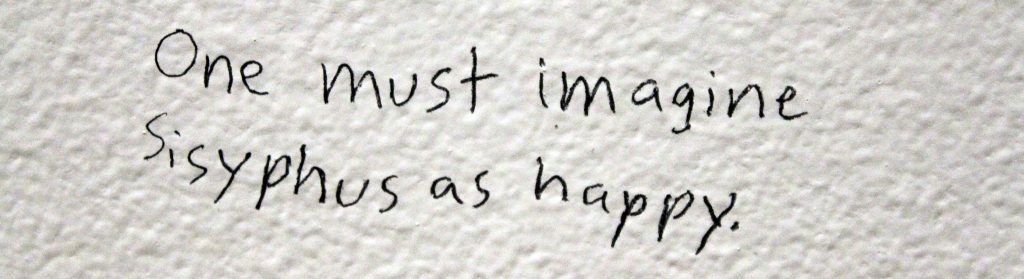 One must imagine
Sisyphus as happy.